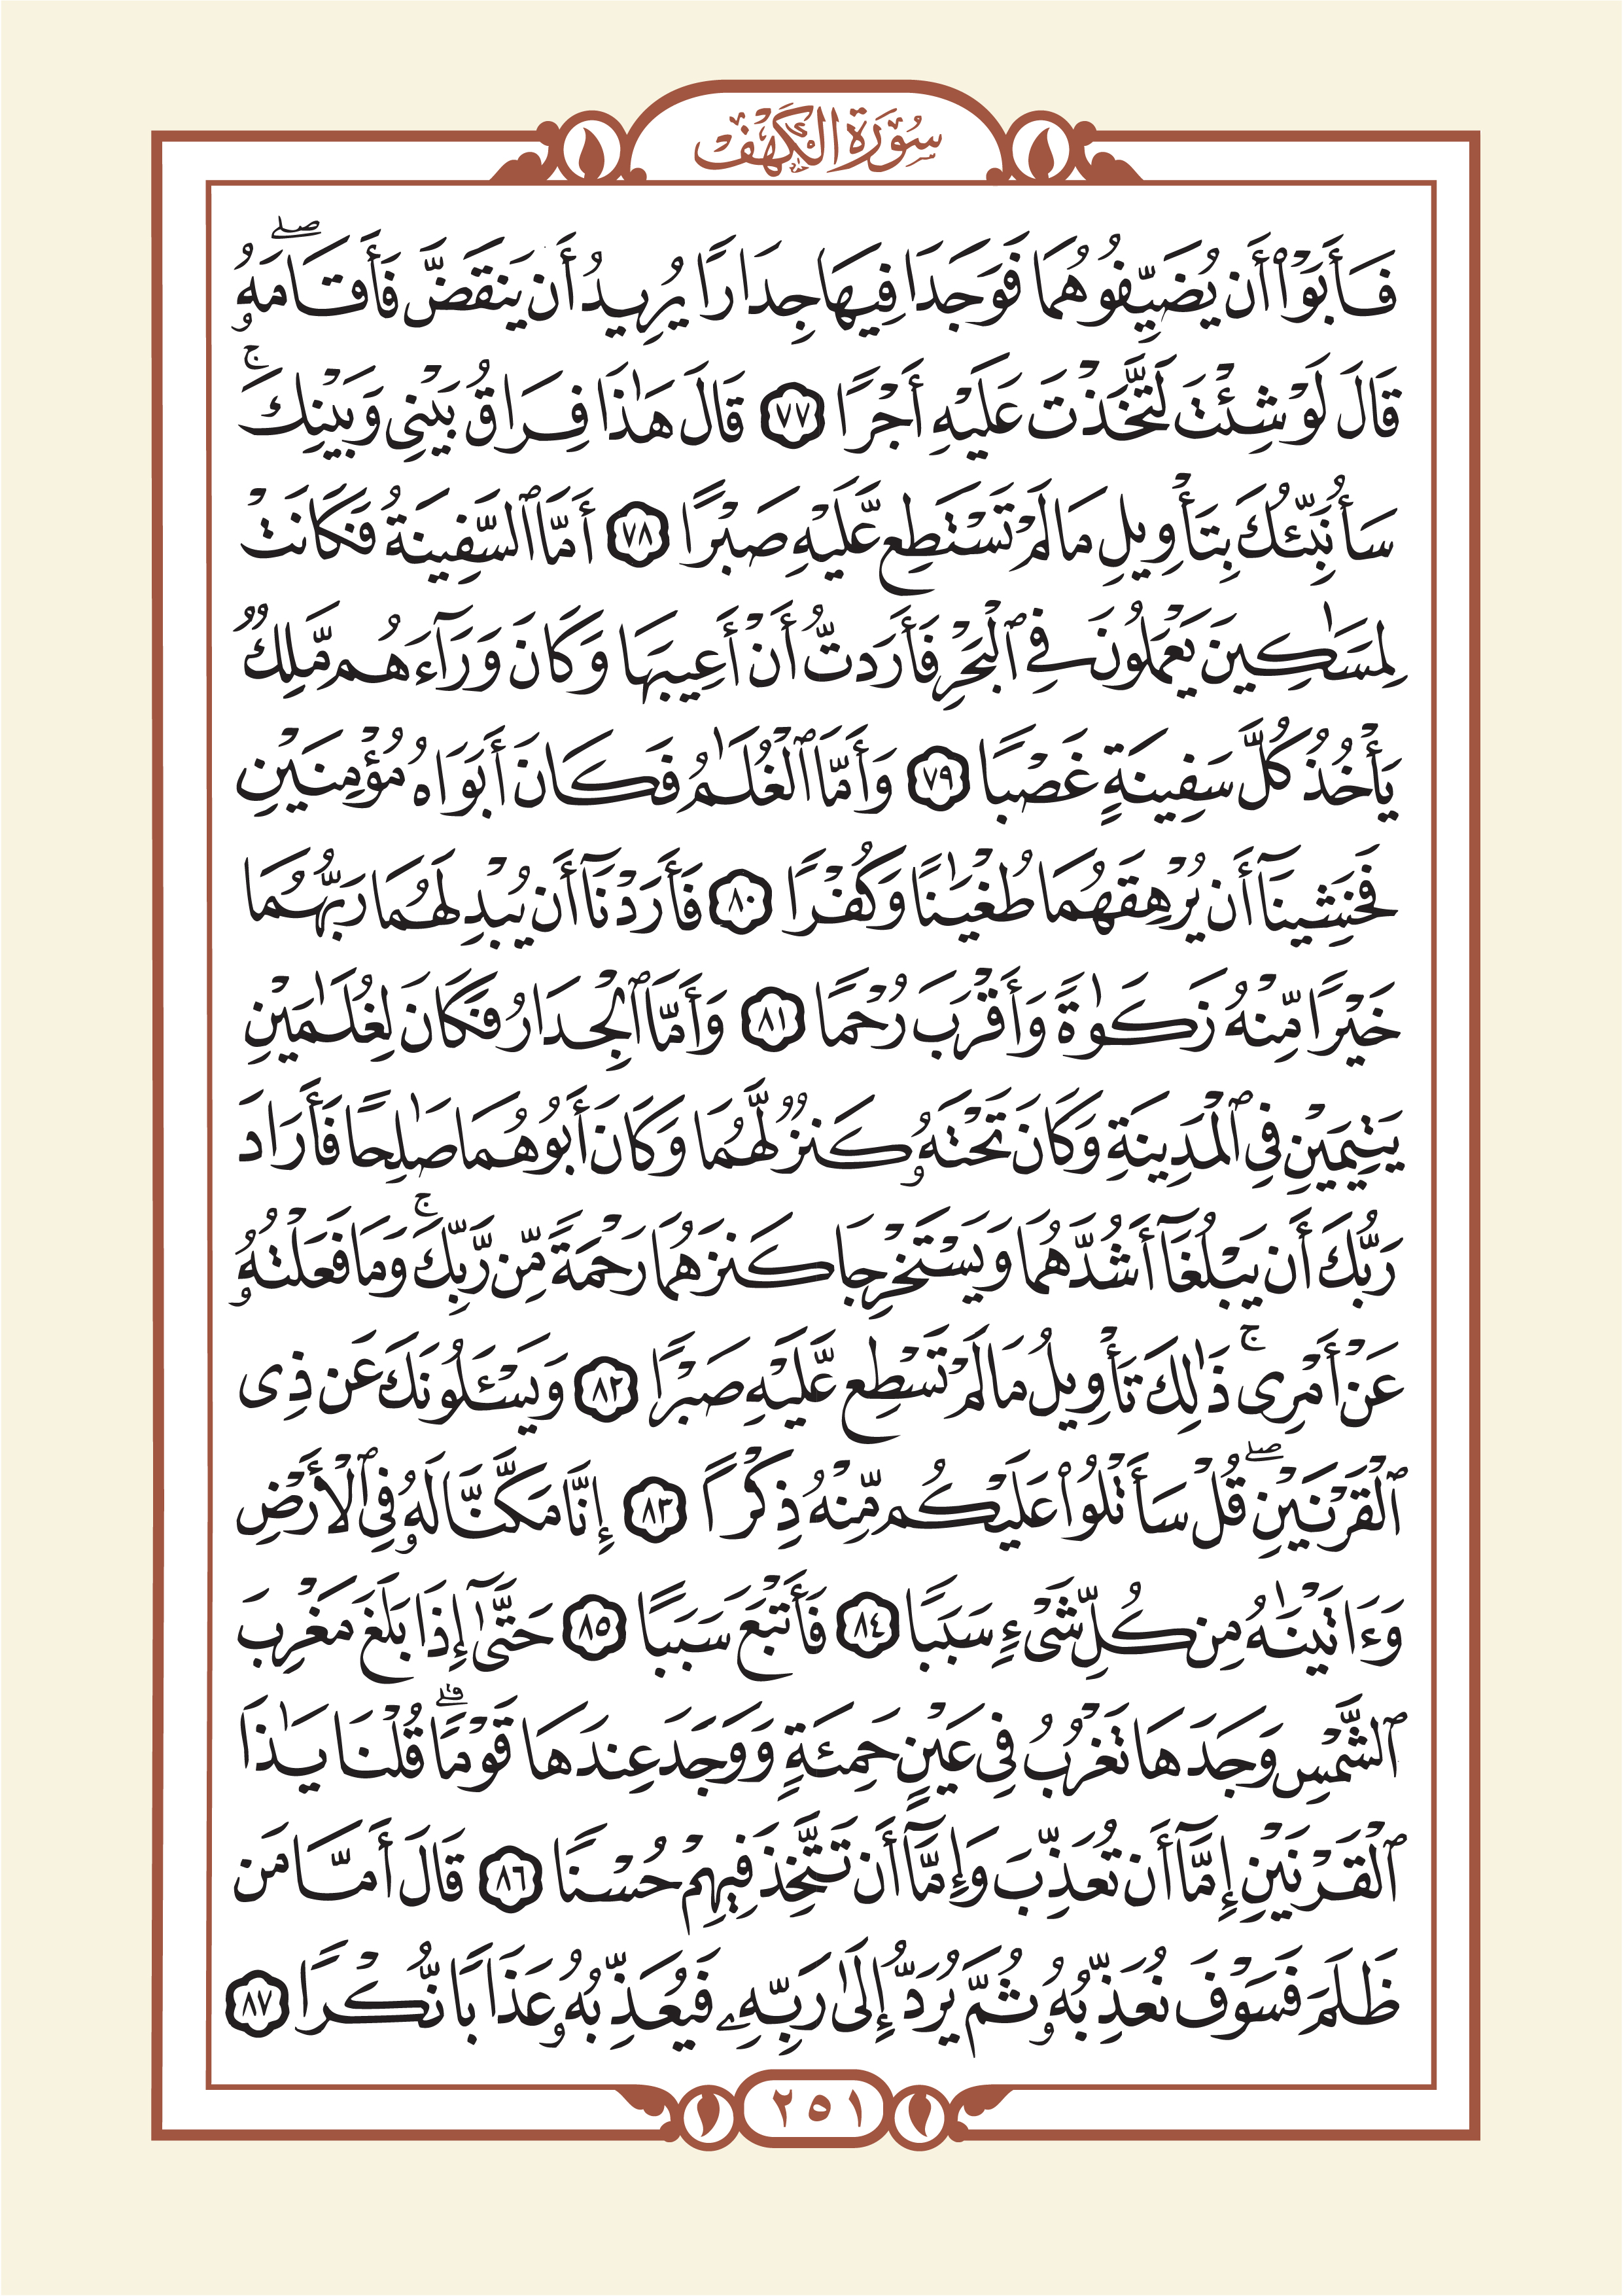 سُورَةُ الكَهْفِ
فَأَبَوْا۟ أَن يُضَيِّفُوهُمَا فَوَجَدَا فِيهَا جِدَارًا يُرِيدُ أَن يَنقَضَّ فَأَقَامَهُۥ ۖ
قَالَ لَوْ شِئْتَ لَتَّخَذْتَ عَلَيْهِ أَجْرًا ٧٧ قَالَ هَـٰذَا فِرَاقُ بَيْنِى وَبَيْنِكَ ۚ
سَأُنَبِّئُكَ بِتَأْوِيلِ مَا لَمْ تَسْتَطِع عَّلَيْهِ صَبْرًا ٧٨ أَمَّا ٱلسَّفِينَةُ فَكَانَتْ
لِمَسَـٰكِينَ يَعْمَلُونَ فِى ٱلْبَحْرِ فَأَرَدتُّ أَنْ أَعِيبَهَا وَكَانَ وَرَآءَهُم مَّلِكٌ
يَأْخُذُ كُلَّ سَفِينَةٍ غَصْبًا ٧٩ وَأَمَّا ٱلْغُلَـٰمُ فَكَانَ أَبَوَاهُ مُؤْمِنَيْنِ
فَخَشِينَآ أَن يُرْهِقَهُمَا طُغْيَـٰنًا وَكُفْرًا ٨٠ فَأَرَدْنَآ أَن يُبْدِلَهُمَا رَبُّهُمَا
خَيْرًا مِّنْهُ زَكَوٰةً وَأَقْرَبَ رُحْمًا ٨١ وَأَمَّا ٱلْجِدَارُ فَكَانَ لِغُلَـٰمَيْنِ
يَتِيمَيْنِ فِى ٱلْمَدِينَةِ وَكَانَ تَحْتَهُۥ كَنزٌ لَّهُمَا وَكَانَ أَبُوهُمَا صَـٰلِحًا فَأَرَادَ
رَبُّكَ أَن يَبْلُغَآ أَشُدَّهُمَا وَيَسْتَخْرِجَا كَنزَهُمَا رَحْمَةً مِّن رَّبِّكَ ۚ وَمَا فَعَلْتُهُۥ
عَنْ أَمْرِى ۚ ذَٰلِكَ تَأْوِيلُ مَا لَمْ تَسْطِع عَّلَيْهِ صَبْرًا ٨٢ وَيَسْـَٔلُونَكَ عَن ذِى
ٱلْقَرْنَيْنِ ۖ قُلْ سَأَتْلُوا۟ عَلَيْكُم مِّنْهُ ذِكْرًا ٨٣ إِنَّا مَكَّنَّا لَهُۥ فِى ٱلْأَرْضِ
وَءَاتَيْنَـٰهُ مِن كُلِّ شَىْءٍ سَبَبًا ٨٤ فَأَتْبَعَ سَبَبًا ٨٥ حَتَّىٰٓ إِذَا بَلَغَ مَغْرِبَ
ٱلشَّمْسِ وَجَدَهَا تَغْرُبُ فِى عَيْنٍ حَمِئَةٍ وَوَجَدَ عِندَهَا قَوْمًا ۗ قُلْنَا يَـٰذَا
ٱلْقَرْنَيْنِ إِمَّآ أَن تُعَذِّبَ وَإِمَّآ أَن تَتَّخِذَ فِيهِمْ حُسْنًا ٨٦ قَالَ أَمَّا مَن
ظَلَمَ فَسَوْفَ نُعَذِّبُهُۥ ثُمَّ يُرَدُّ إِلَىٰ رَبِّهِۦ فَيُعَذِّبُهُۥ عَذَابًا نُّكْرًا ٨٧
٢٥١